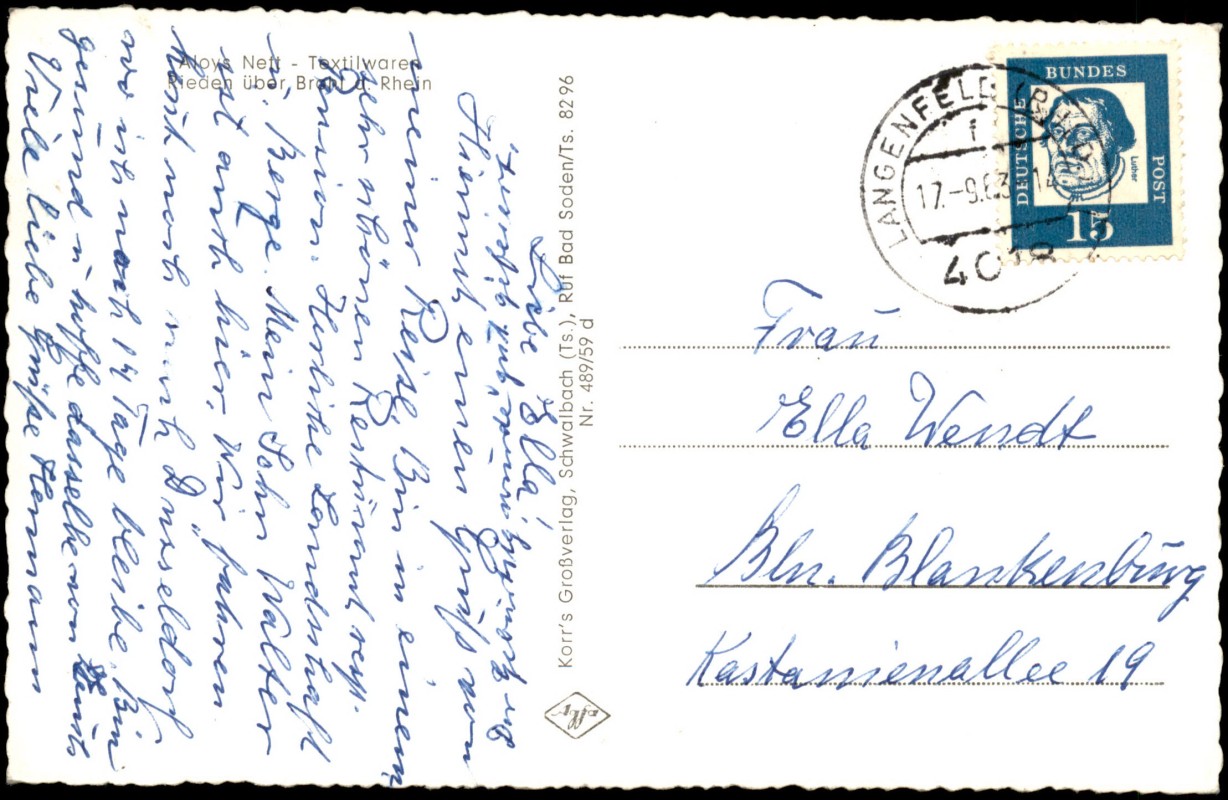 Aloys Nett - Textilwaren
Rieden über Brohl a. Rhein
Liebe Ella!
Hiermit einen Gruß von
meiner Reise. Bin in einem
sehr schönen Restaurant resp.
Pension. Herrliche Landschaft
u. Berge. Mein Sohn Walter
ist auch hier. Wir fahren
heut noch nach Düsseldorf
wo ich noch 14 Tage bleibe. Bin
gesund u. hoffe dasselbe von
Viele liebe Grüße Hermann
Korr's Großverlag, Schwalbach (Ts.), Ruf Bad Soden/Ts. 8296
Nr. 489/59 d
LANGENFELD (RHLD)
f
17.-9.63.-14
4018
DEUTSCHE
BUNDES
POST
Luther
15
Frau
Ella Wendt
Bln. Blankenburg
Kastanienallee 19